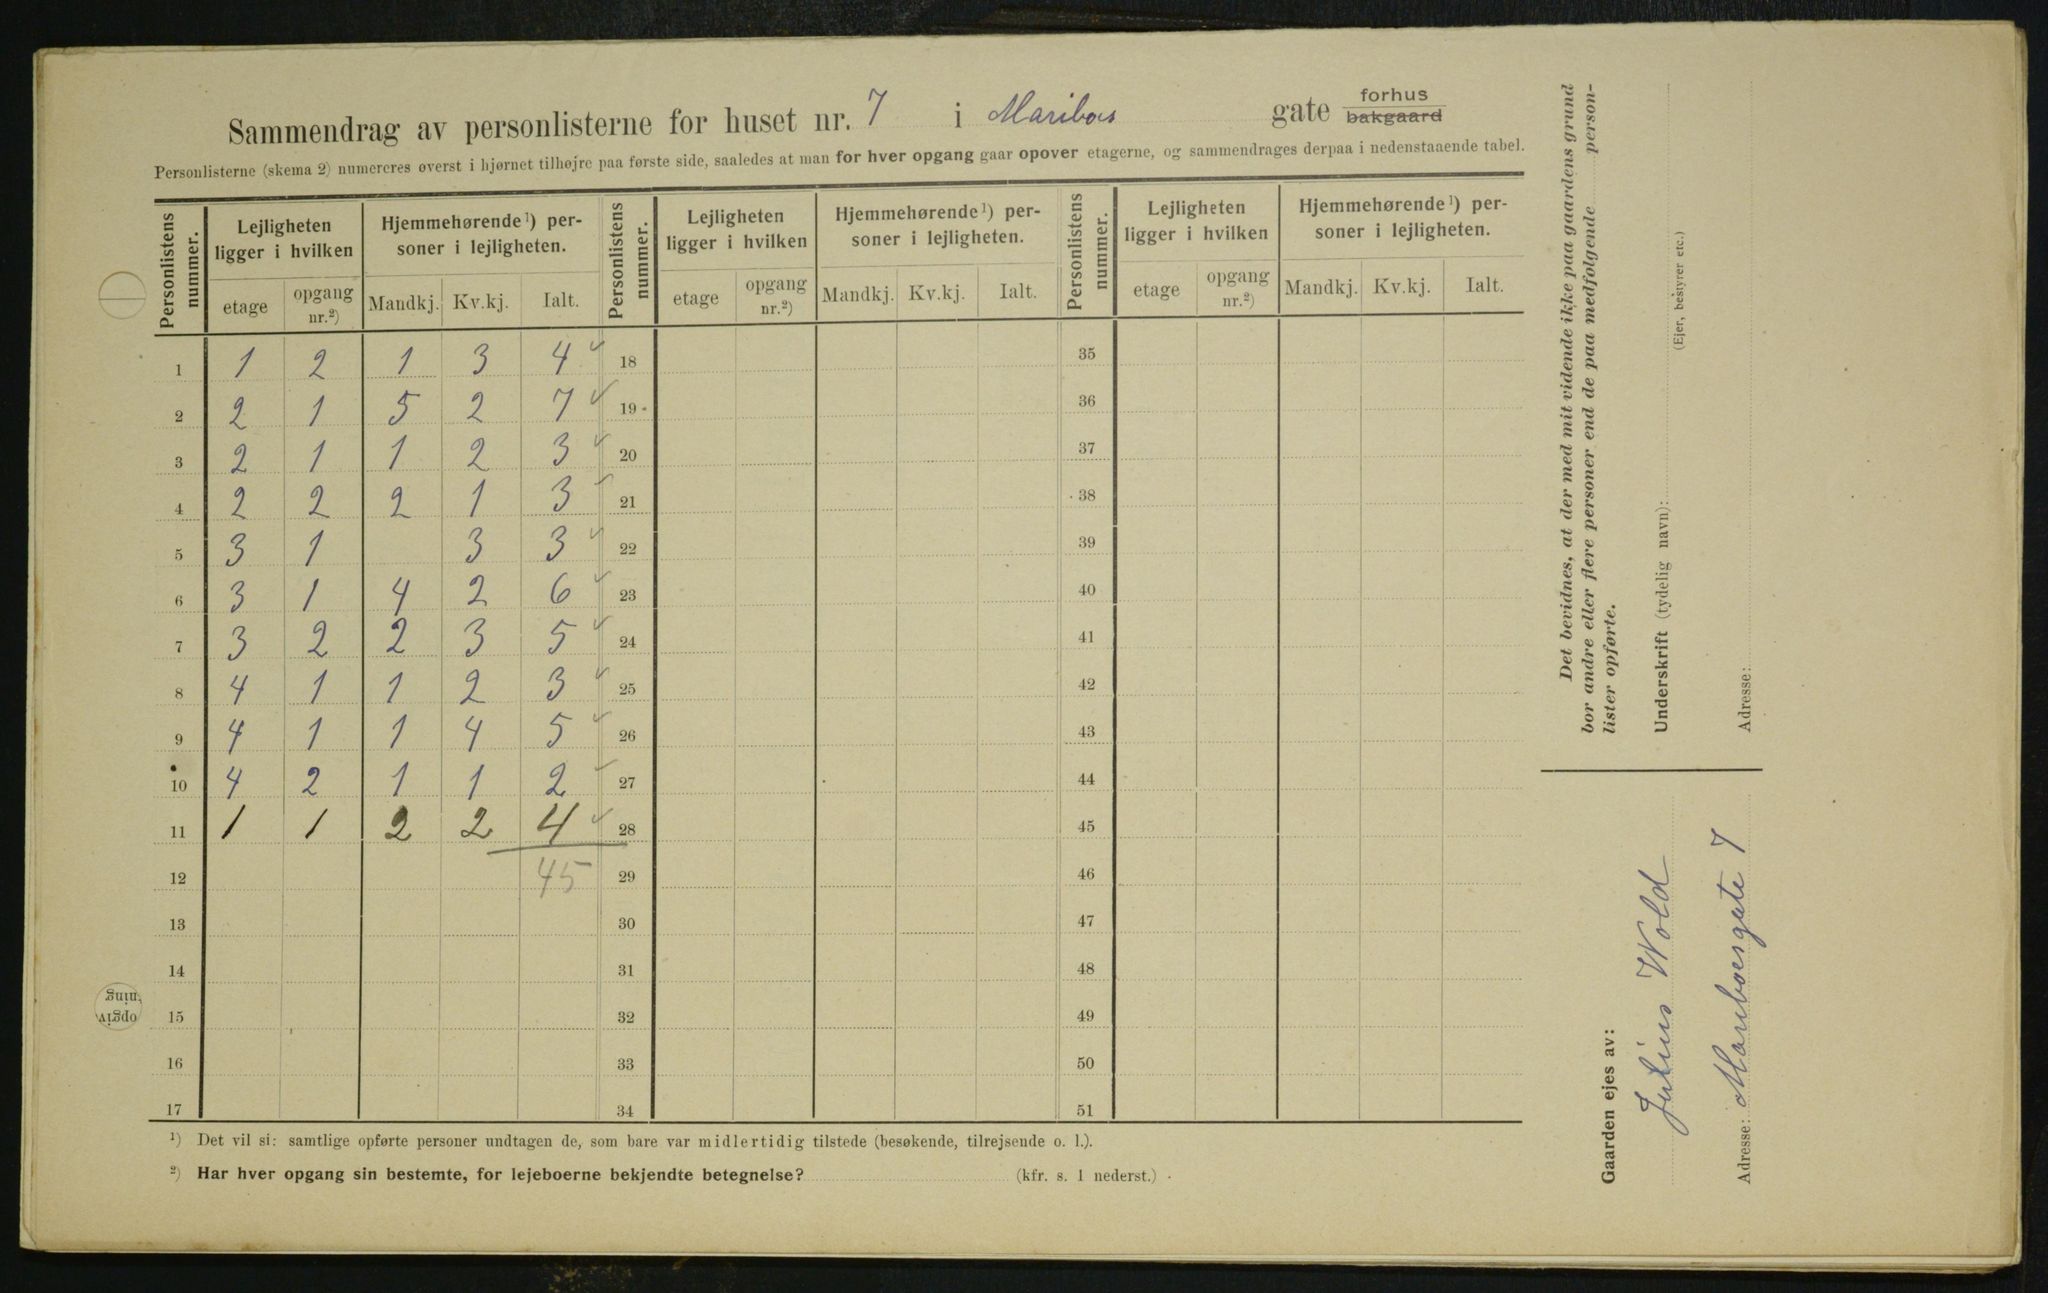 Sammendrag av personlisterne for huset nr. 7 i Maribos gate forhus bakgaard
Personlisterne (skema 2) numereres øverst i hjørnet tilhøjre paa første side, saaledes at man for hver opgang gaar opover etagerne, og sammendrages derpaa i nedenstaaende tabel.
Personlistens nummer. Lejligheten ligger i hvilken Hjemmehørende¹) personer i lejligheten. Personlistens nummer. Lejligheten ligger i hvilken Hjemmehørende¹) personer i lejligheten. Personlistens nummer. Lejligheten ligger i hvilken Hjemmehørende¹) personer i lejligheten.
etage opgang nr.²) Mandkj. Kv.kj. Ialt. etage opgang nr.²) Mandkj. Kv.kj. Ialt. etage opgang nr.²) Mandkj. Kv.kj. Ialt.
1 1 2 1 3 4 18 35
2 2 1 5 2 7 19 36
3 2 1 1 2 3 20 37
4 2 2 2 1 3 21 38
5 3 1 3 3 22 39
6 3 1 4 2 6 23 40
7 3 2 2 3 5 24 41
8 4 1 1 2 3 25 42
9 4 1 1 4 5 26 43
10 4 2 1 1 2 27 44
11 1 1 2 2 4 28 45
12 45 29 46
13 30 47
14 31 48
15 32 49
16 33 50
17 34 51
¹) Det vil si: samtlige opførte personer undtagen de, som bare var midlertidig tilstede (besøkende, tilrejsende o. l.).
²) Har hver opgang sin bestemte, for lejeboerne bekjendte betegnelse? (kfr. s. 1 nederst.)
Det bevidnes, at der med mit vidende ikke paa gaardens grund
bor andre eller flere personer end de paa medfølgende person-
lister opførte.
Underskrift (tydelig navn):
(Ejer, bestyrer etc.)
Adresse:
Gaarden ejes av:
Julius Wold
Adresse: Mariboesgate 7
opgiv
ning